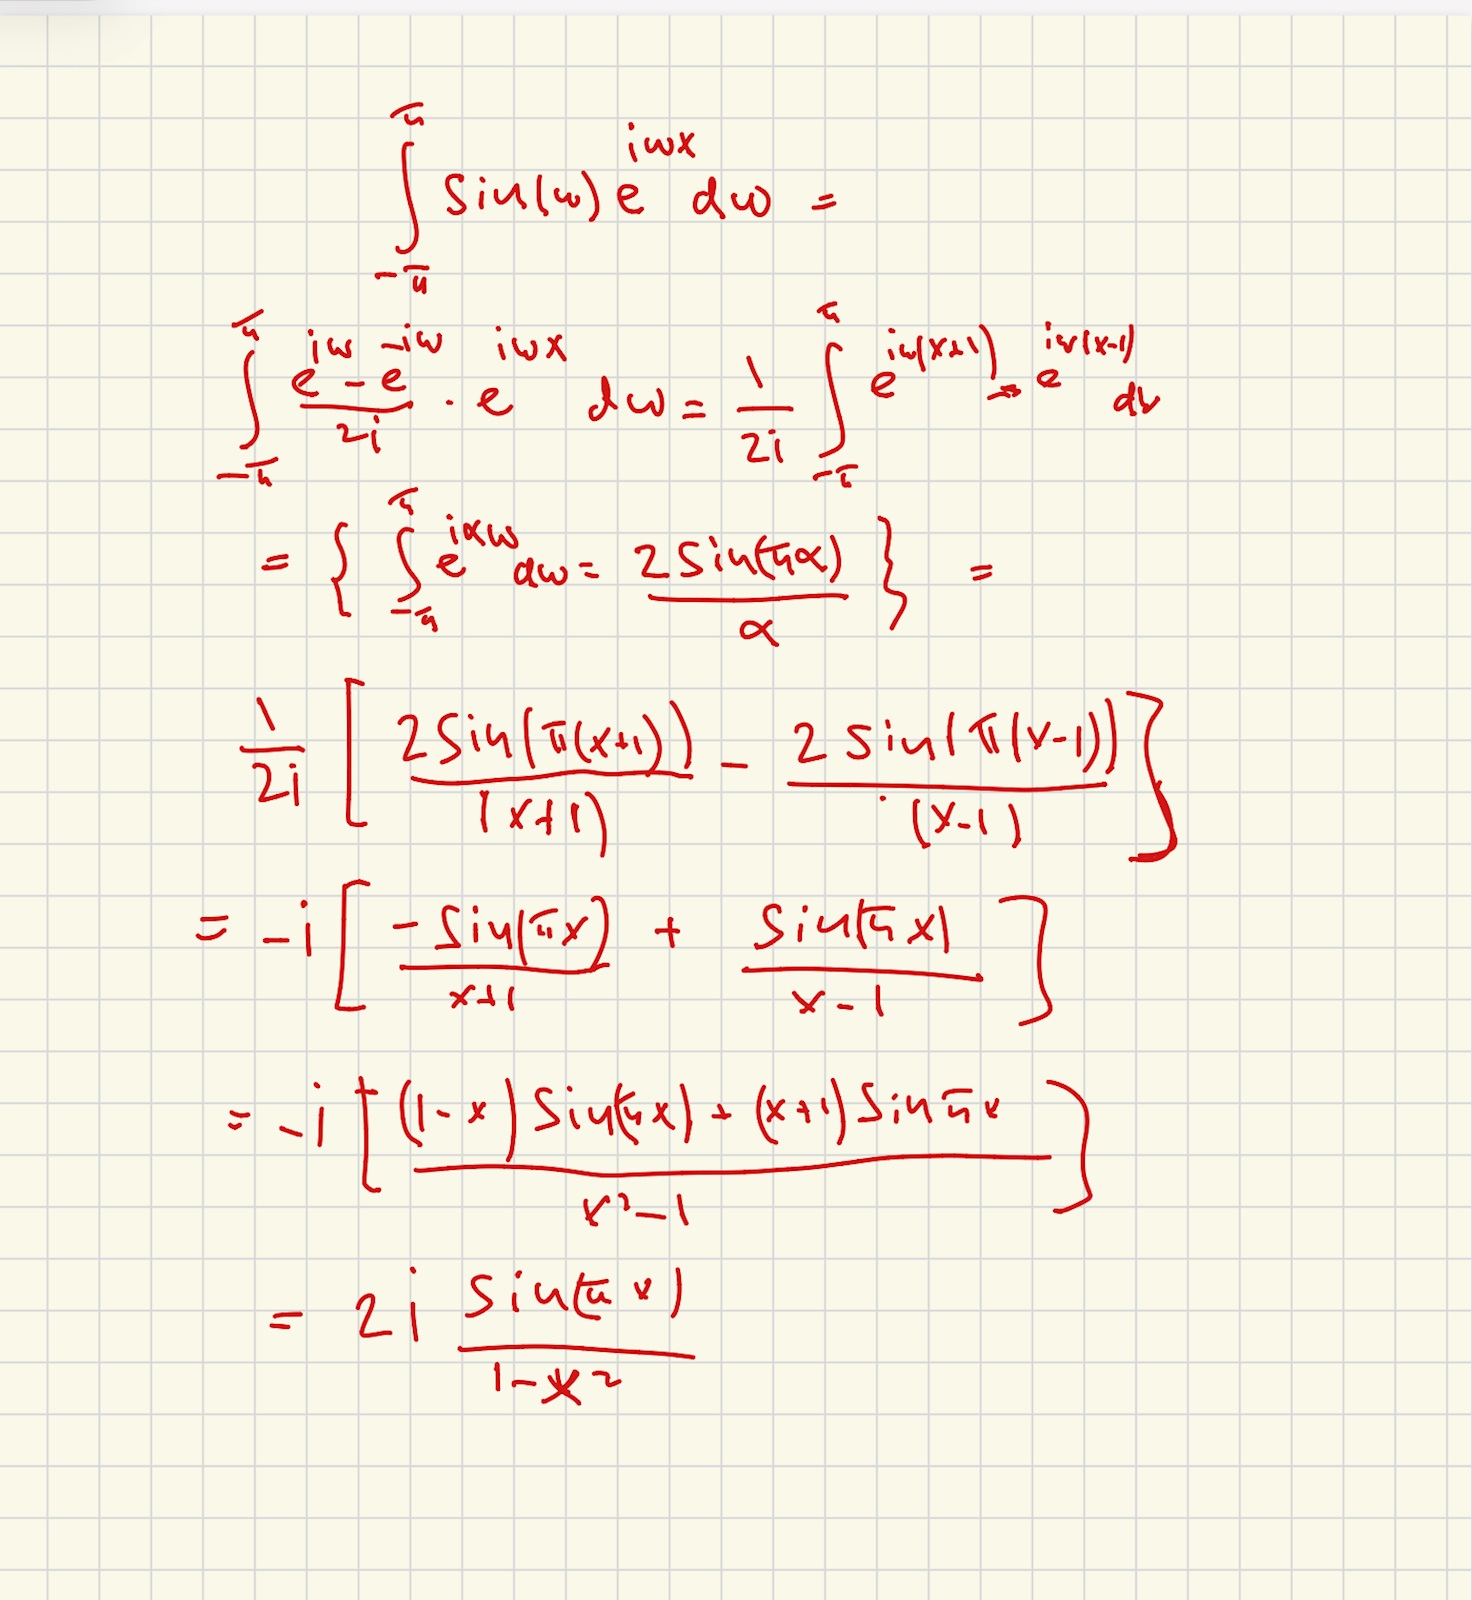 ∫_{-π}^{π} Sin(ω) e^{iωx} dω =
∫_{-π}^{π} (e^{iω} - e^{-iω})/(2i) · e^{iωx} dω = 1/(2i) ∫_{-π}^{π} e^{iω(x+1)} - e^{iω(x-1)} dω
= { ∫_{-π}^{π} e^{iαω} dω = 2Sin(πα)/α } =
1/(2i) [ 2Sin(π(x+1))/(x+1) - 2Sin(π(x-1))/(x-1) ]
= -i [ -Sin(πx)/(x+1) + Sin(πx)/(x-1) ]
= -i [ ((1-x) Sin(πx) + (x+1) Sin πx)/(x²-1) ]
= 2i Sin(πx)/(1-x²)